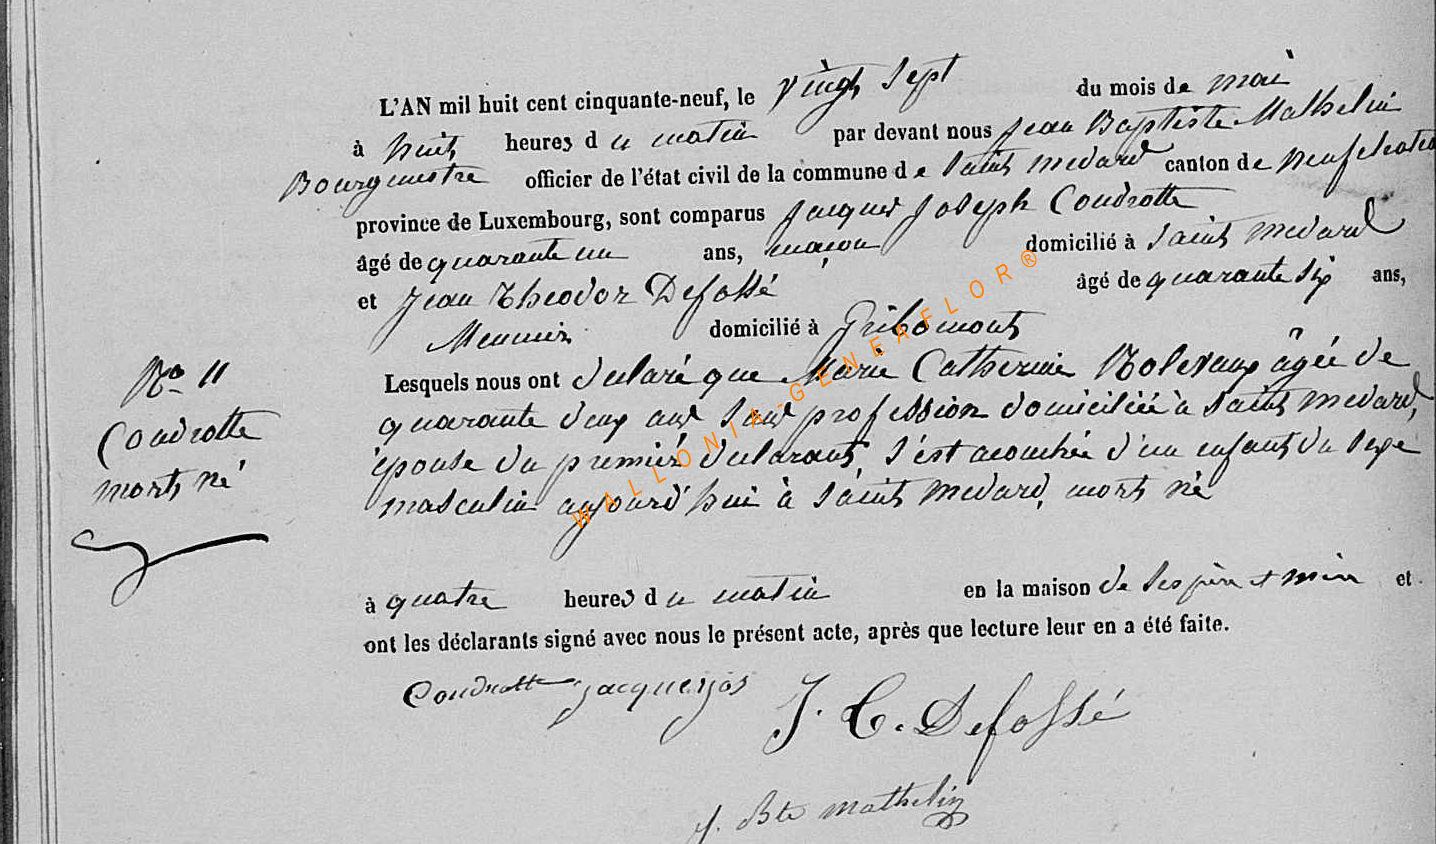 L'AN mil huit cent cinquante-neuf, le vingt sept du mois de mai
à huit heures du matin par devant nous Jean Baptiste Mathelin
Bourgmestre officier de l'état civil de la commune de Saint medard canton de neufchateau
province de Luxembourg, sont comparus Jacques Joseph Coudrotte
âgé de quarante un ans, maçon domicilié à Saint medard
et Jean Theodor Defossé âgé de quarante six ans,
Meunier domicilié à Gribomont
Lesquels nous ont déclaré que Marie Catherine âgée de
quarante deux ans sans profession domiciliée à Saint medard,
épouse du premier déclarant, s'est acouchée d'un enfant du sexe
masculin aujourd'hui à Saint medard, mort né
No 11
Coudrotte
mort né
à quatre heures du matin en la maison de ses père et mère et
ont les déclarants signé avec nous le présent acte, après que lecture leur en a été faite.
Coudrotte jacques jos
J. T. Defossé
J. Bte Mathelin
WALLONIA-GENEAFLOR®